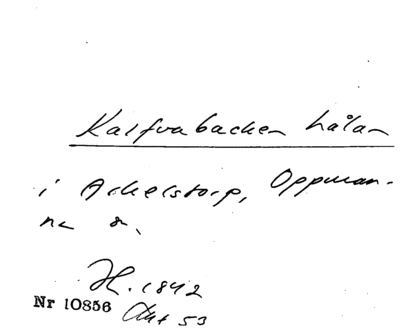 Kalfvabacken hålan
i Arkelstorp, Oppman-
na s.
H. 1842
Nr 10856 Akt 53